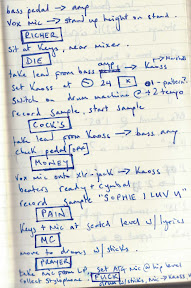 bass pedal → amp
Vox mic → stand up height on stand.
RICHER
sit at keys, near mixer.
DIE
amp
take lead from bass → Kaoss
set Kaoss at 24
switch on drum machine @ + 2 tempo
record sample, start sample
COCK'S
take lead from Kaoss → bass amp
check pedal [OFF]
MONEY
Vox mic onto xlr-jack → Kaoss
beaters ready + cymbal
record sample "SOPHIE I LUV U"
PAIN
Keys + Mic at seated level w/ lyrics
MC
move to drums w/ sticks.
PRAYER
take mic from LP. set ATG mic @ hip level
collect Stylophone. FUCK
drum w/ sticks, Mic → Kaoss